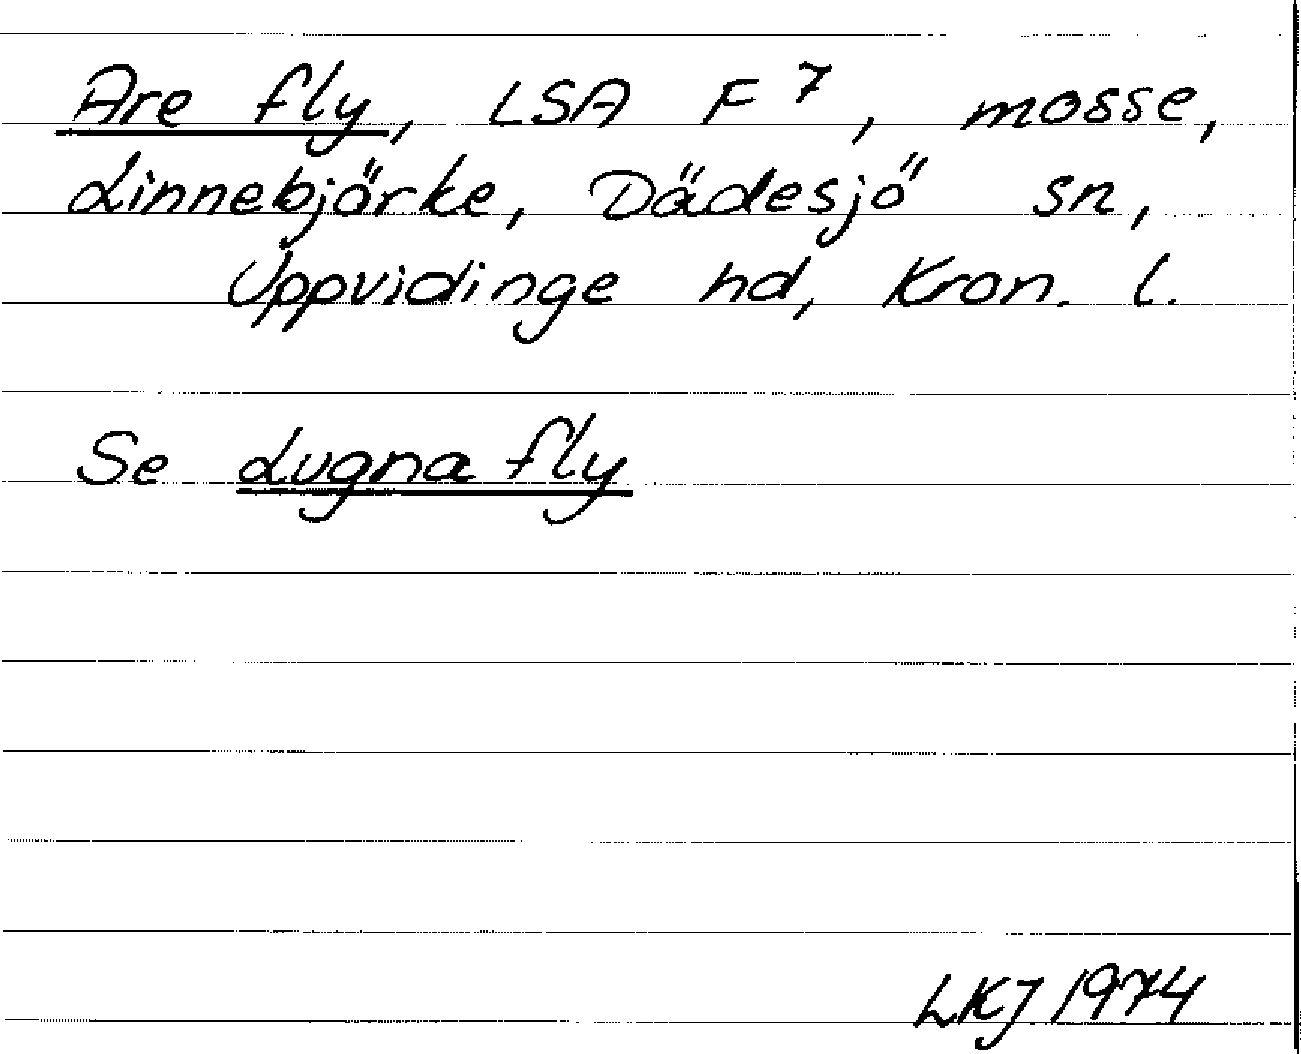 Are fly, LSA F 7, mosse,
Linnebjörke, Dädesjö sn,
Uppvidinge hd, Kron. l.
Se Lugna fly
LKJ 1974